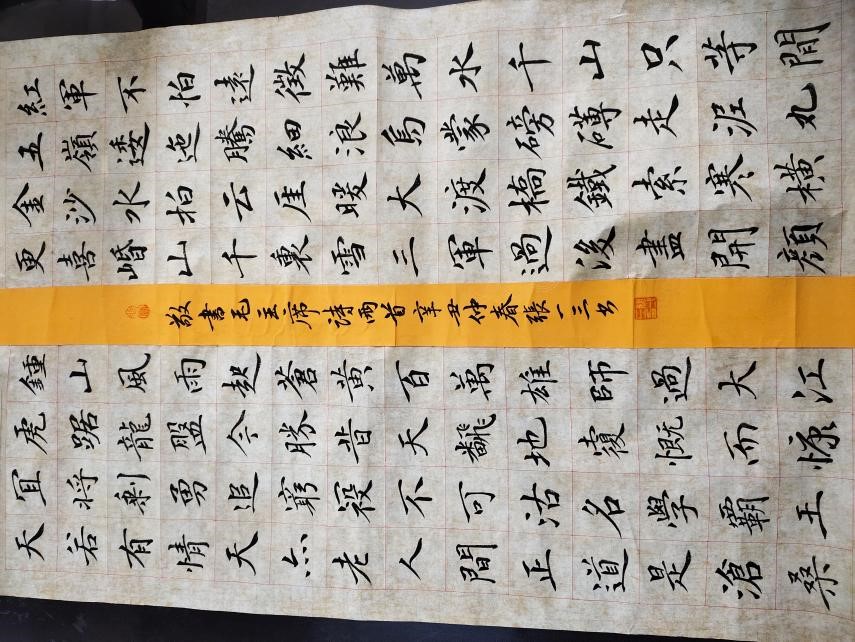 紅軍不怕遠徵難萬水千山只等閒
五嶺逶迤騰細浪烏蒙磅礴走泥丸
金沙水拍云厓暖大渡橋鐵索寒橫
更喜崏山千裏雪三軍過後盡開顏
敬書毛主席詩兩首辛丑仲春張一三书
鍾山風雨起蒼黃百萬雄師過大江
虎踞龍盤今勝昔天飜地覆慨而慷
宜将剩勇追窮寇不可沽名學霸王
天若有情天亦老人間正道是滄桑